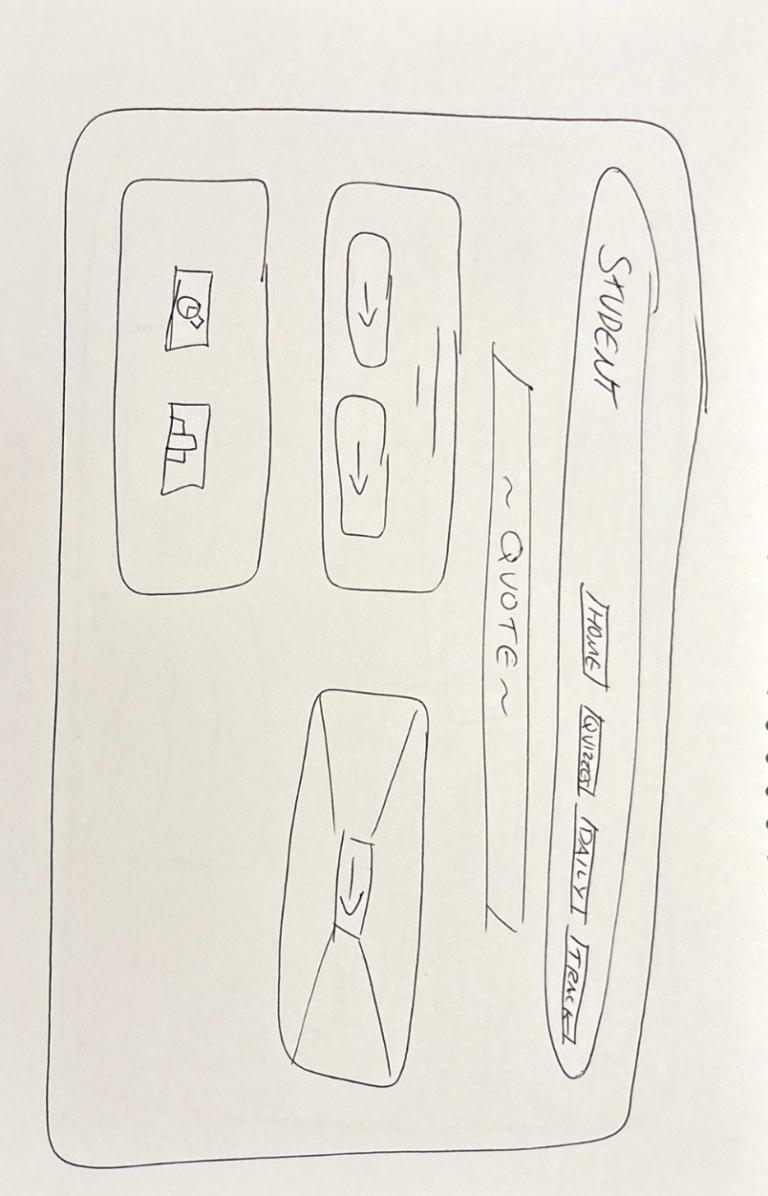 STUDENT
HOME
QUIZZES
DAILY
TRACK
~ QUOTE ~